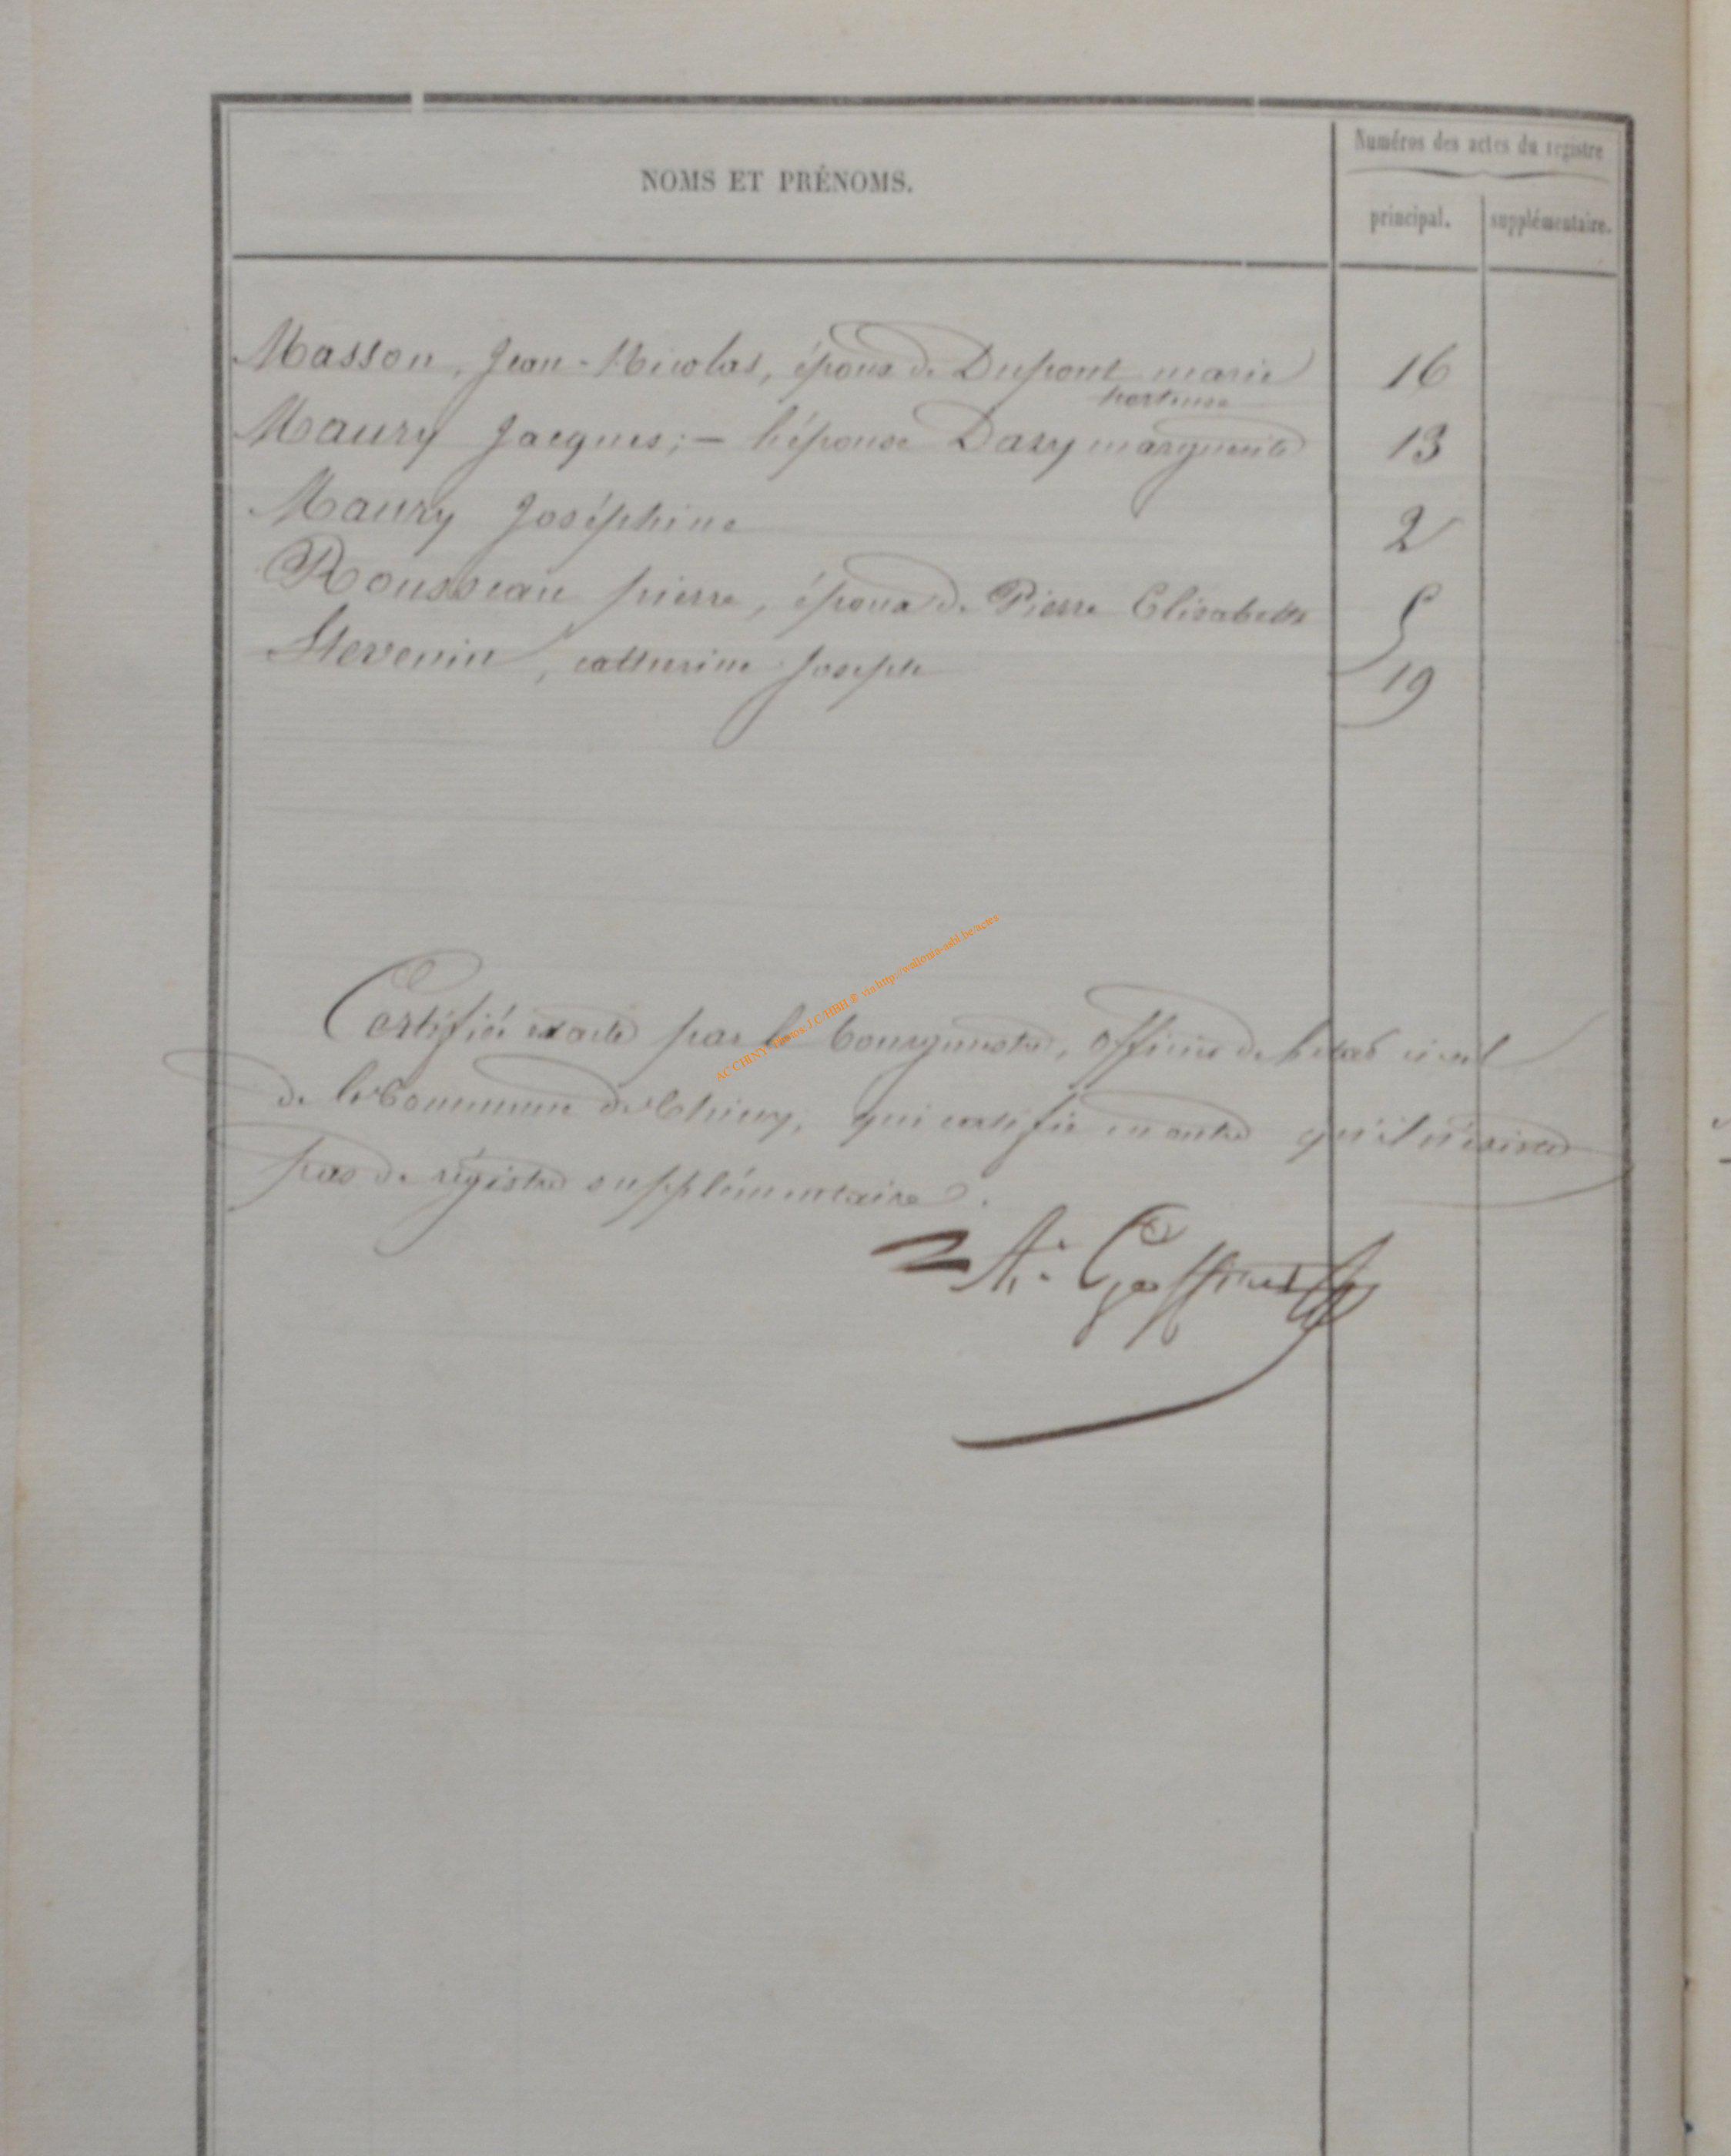 NOMS ET PRÉNOMS.
Numéros des actes du registre
principal. supplémentaire.
Masson, Jean-Nicolas, époux de Dupont marie hortense 16
Maury Jacques; — l'épouse Dasy marguerite 13
Maury Joséphine 2
Rousseau pierre, époux de Pierre Elisabeth 5
Stevenin, catherine Joseph 19
Certifiée exacte par le bourgmestre, officier de l'état civil
de la Commune de Chiny, qui certifie en outre qu'il n'existe
pas de régistre supplémentaire.
A. Goffinet
AC CHINY Photos J.C HBH © via http://